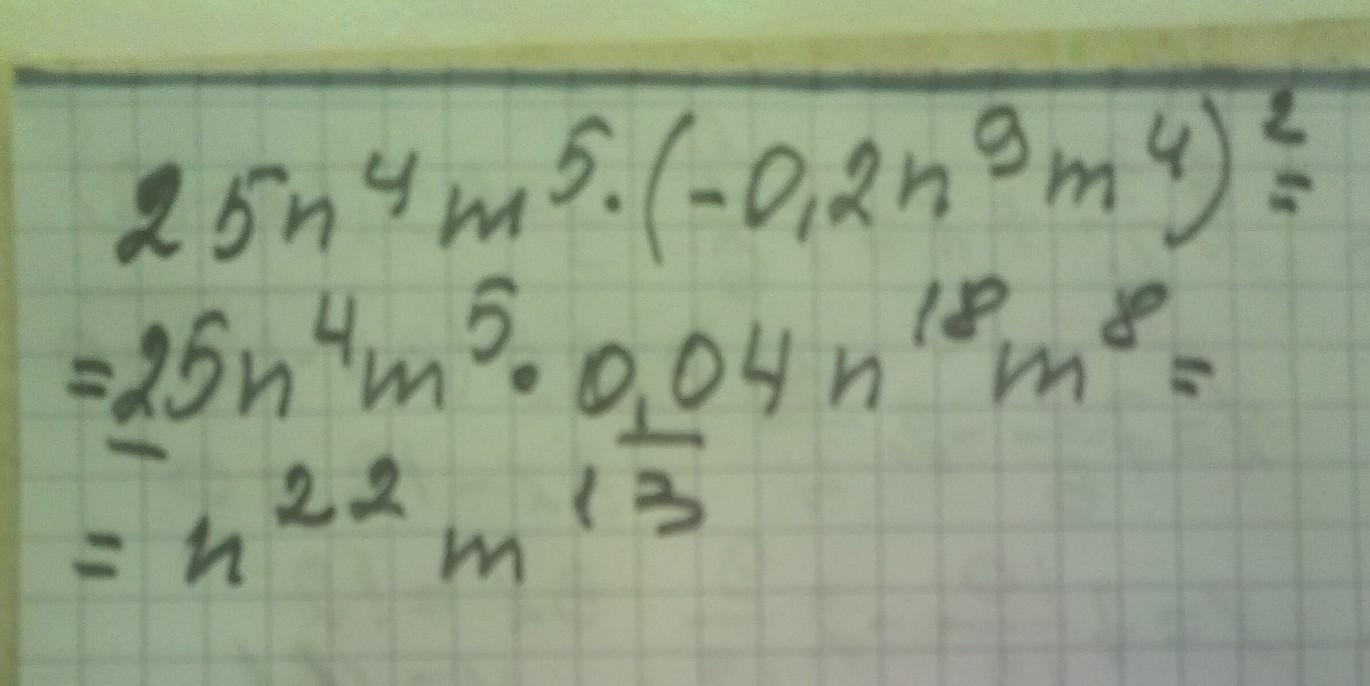 25n⁴m⁵·(-0,2n⁹m⁴)²=
=25n⁴m⁵·0,04n¹⁸m⁸=
=n²²m¹³